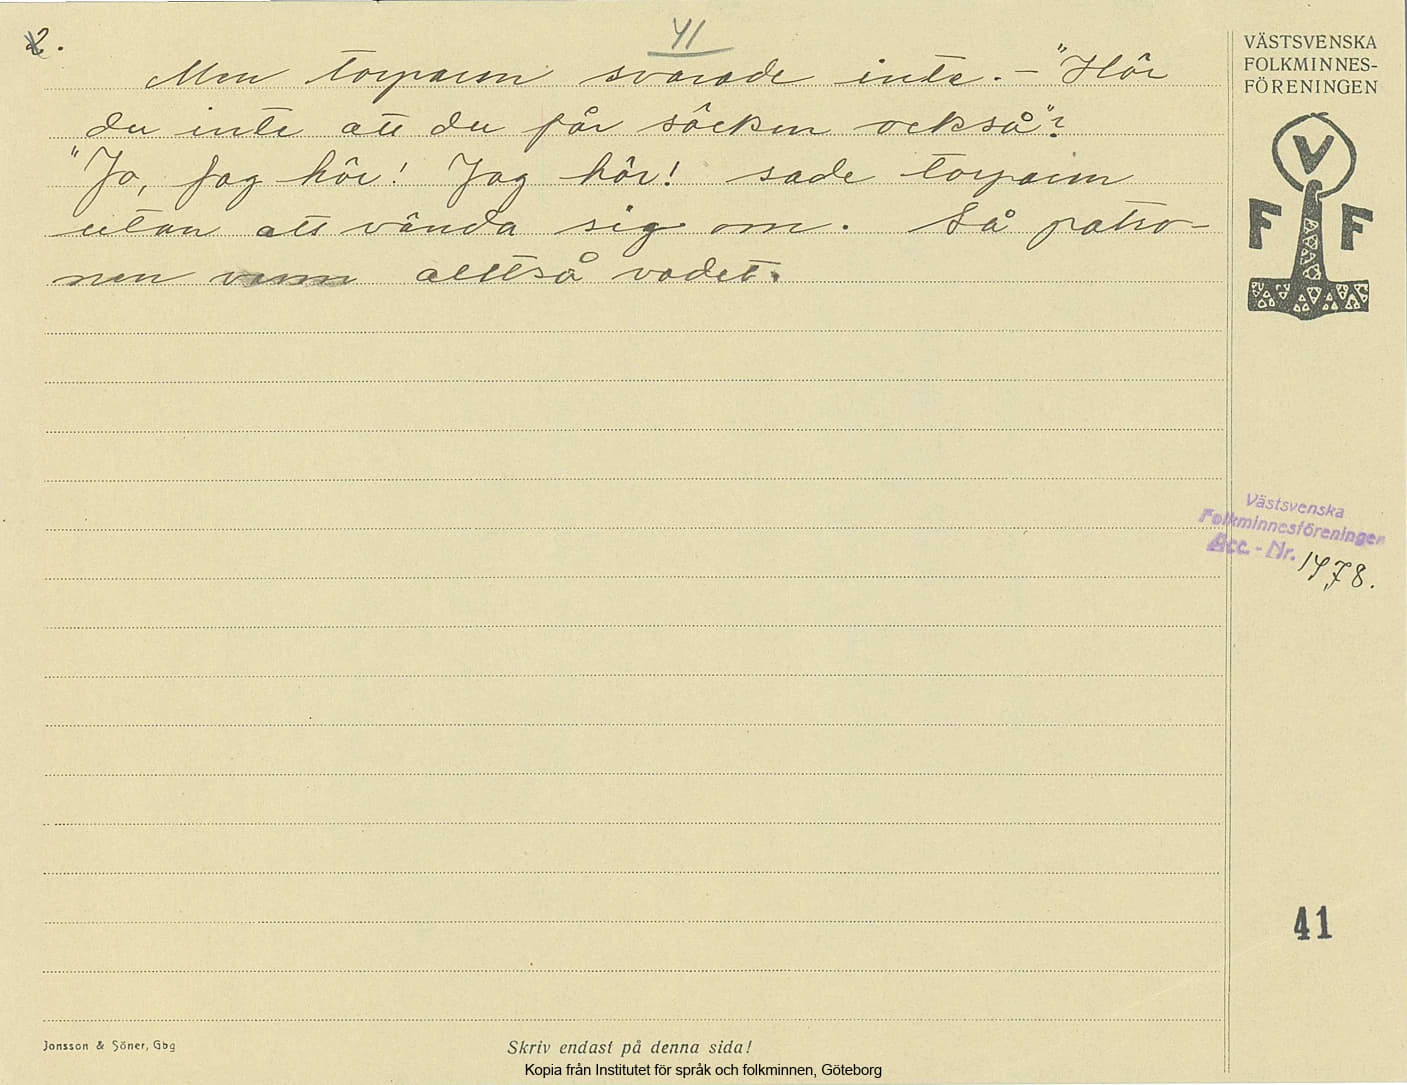 2.
41
Men torparn svarade inte. – "Hör
du inte att du får söcken också"?
"Jo, jag hör! Jag hör! sade torparn
utan att vända sig om. Så patro-
nen vann alltså vadet.
VÄSTSVENSKA
FOLKMINNES-
FÖRENINGEN
V
F F
Västsvenska
Folkminnesföreningen
Acc. - Nr. 1478.
41
Jonsson & Söner, Gbg
Skriv endast på denna sida!
Kopia från Institutet för språk och folkminnen, Göteborg